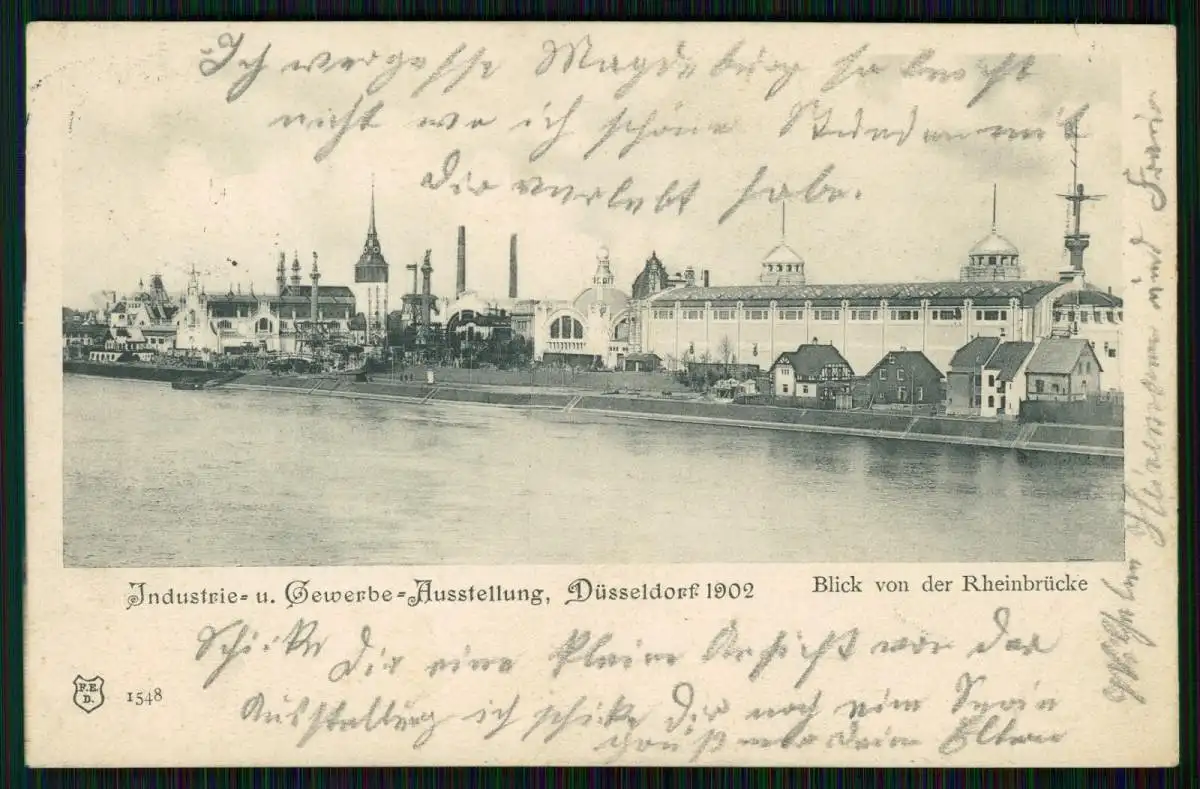 Ich vergesse Magdeburg so leicht
nicht wo ich schöne Stunden mit
Dir verlebt habe.
Industrie- u. Gewerbe-Ausstellung, Düsseldorf 1902
Blick von der Rheinbrücke
Schicke Dir eine kleine Ansicht von der
Ausstellung ich schicke Dir noch eine Serie
grüß mir deine Eltern
F.E.D.
1548
dein Freund